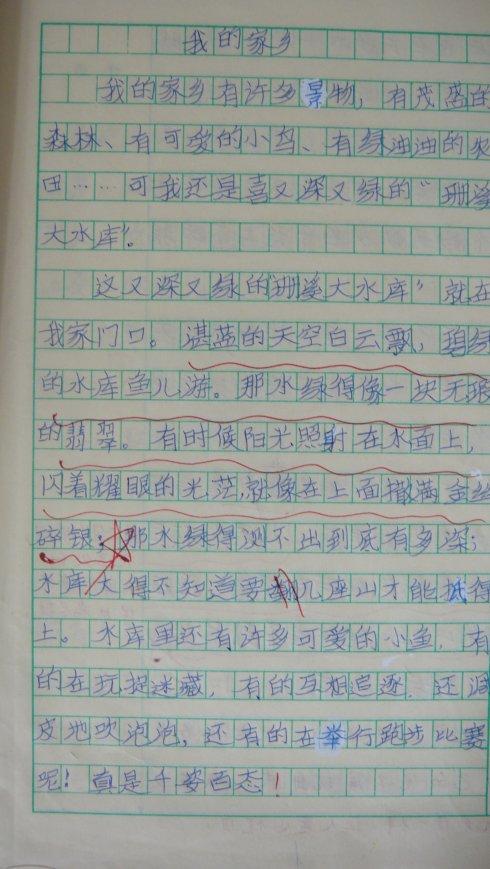 我的家乡
我的家乡有许多景物，有茂盛的
森林、有可爱的小鸟、有绿油油的农
田……可我还是喜又深又绿的“珊溪
大水库”。
这又深又绿的“珊溪大水库”就在
我家门口。湛蓝的天空白云飘，碧绿
的水库鱼儿游。那水绿得像一块无瑕
的翡翠。有时候阳光照射在水面上，
闪着耀眼的光茫，就像在上面撒满金丝
碎银；那水绿得测不出到底有多深；
水库大得不知道要几座山才能抵得
上。水库里还有许多可爱的小鱼，有
的在玩捉迷藏，有的互相追逐，还调
皮地吹泡泡，还有的在举行跑步比赛
呢！真是千姿百态！